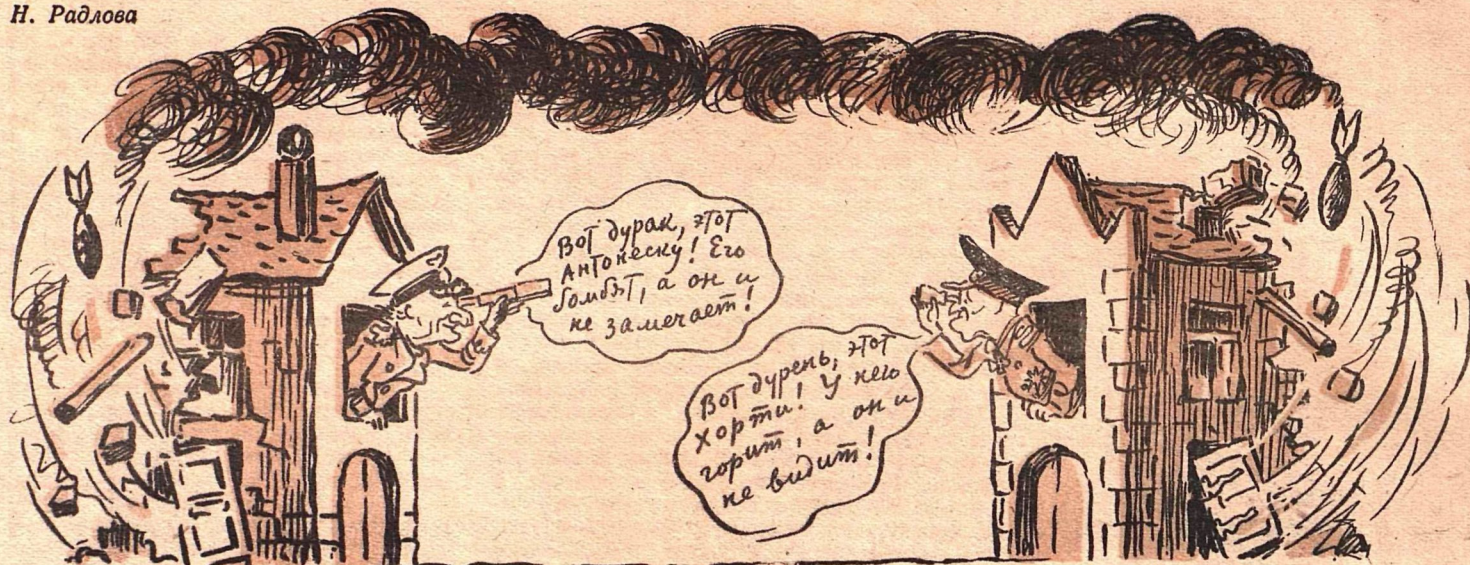 Н. Радлова
Вот дурак, этот
Антонеску! Его
бомбят, а он и
не замечает!
Вот дурень, этот
Хорти! У него
горит, а он и
не видит!